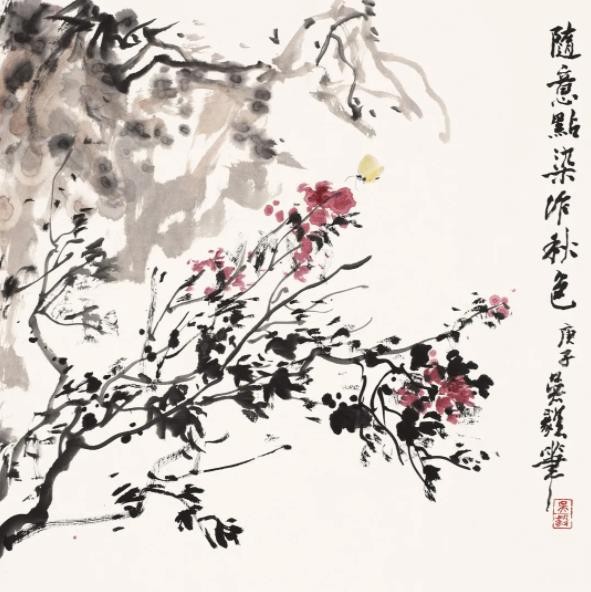 隨意點染作秋色 庚子 吳毅筆